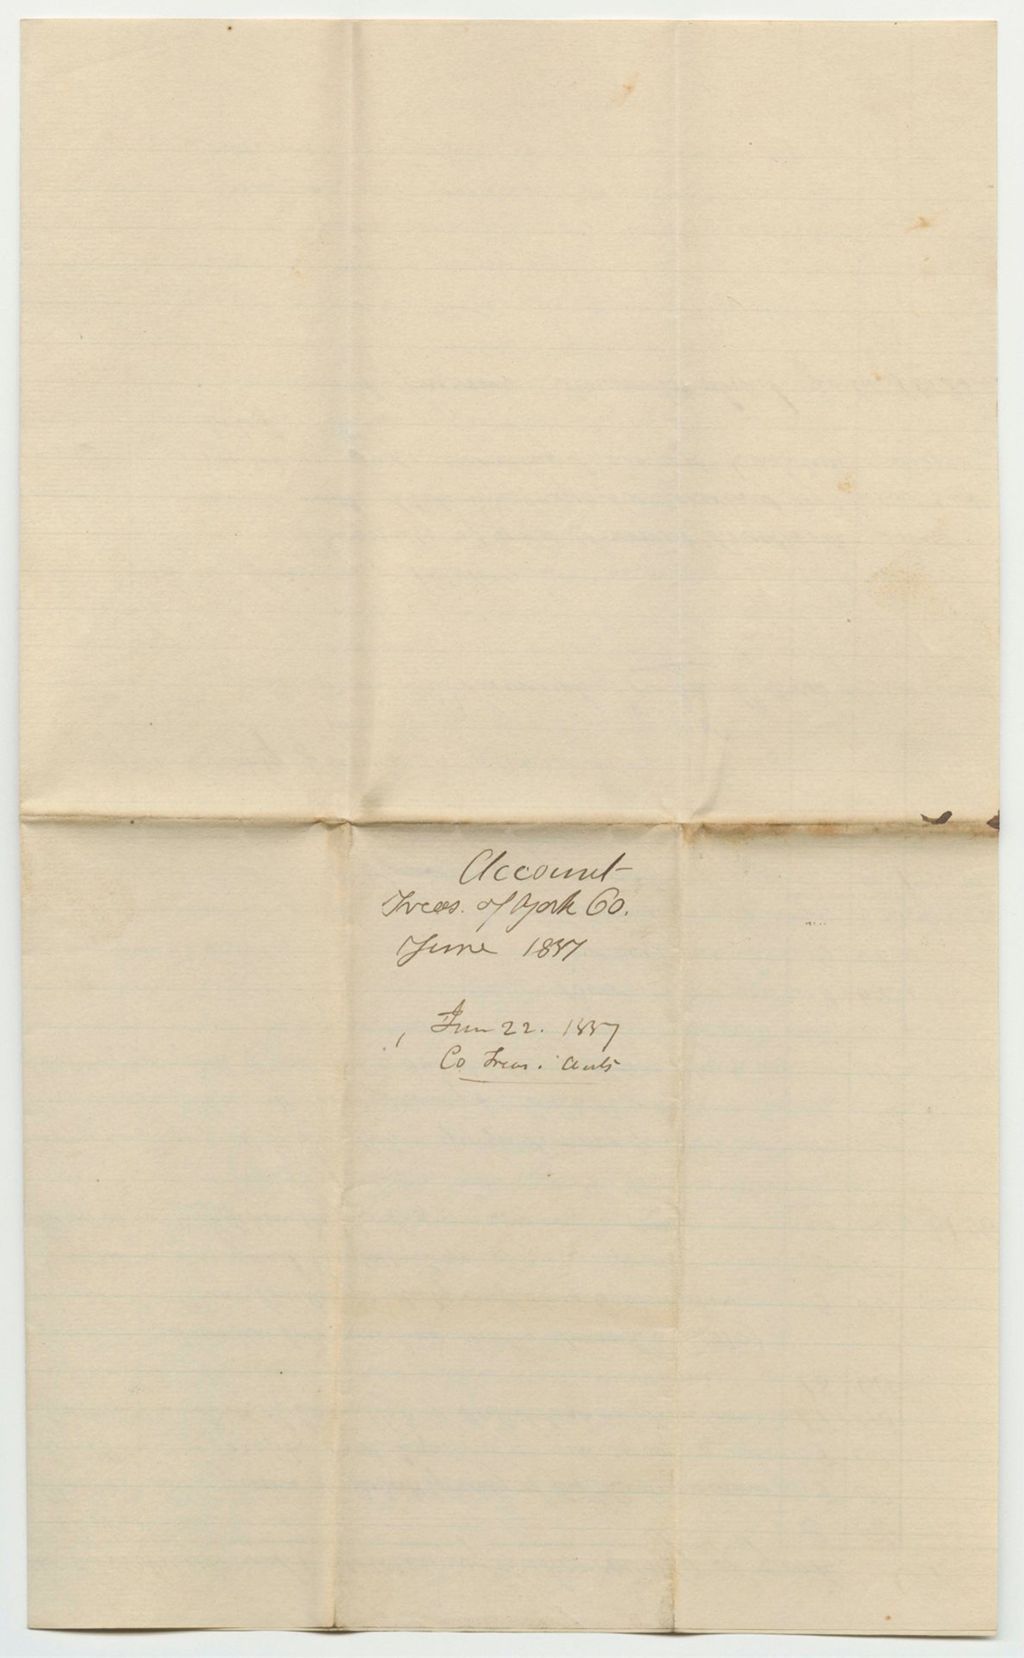 Account
Treas. of York Co.
June 1887
Jun 22. 1887
Co Treas.